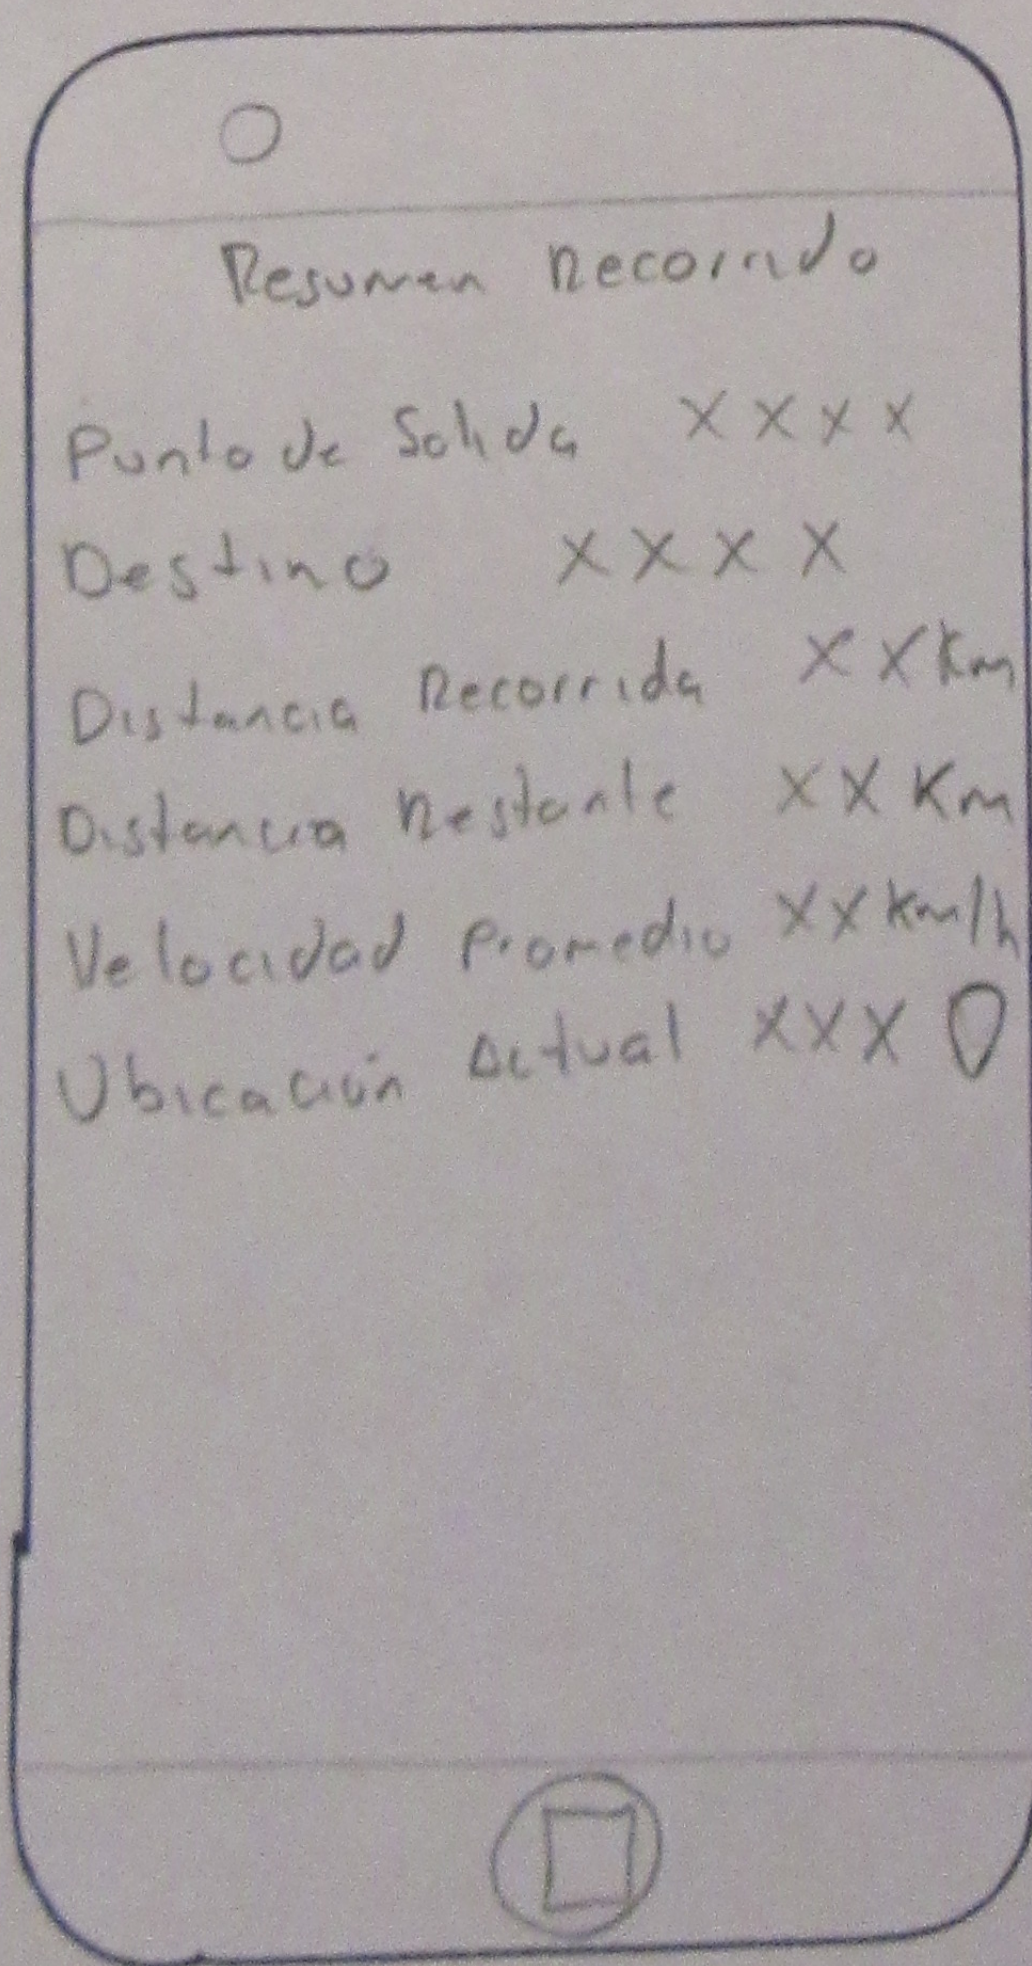 Resumen Recorrido
Punto de Salida XXXX
Destino XXXX
Distancia Recorrida XXKm
Distancia Restante XX Km
Velocidad Promedio XXkm/h
Ubicación Actual XXX